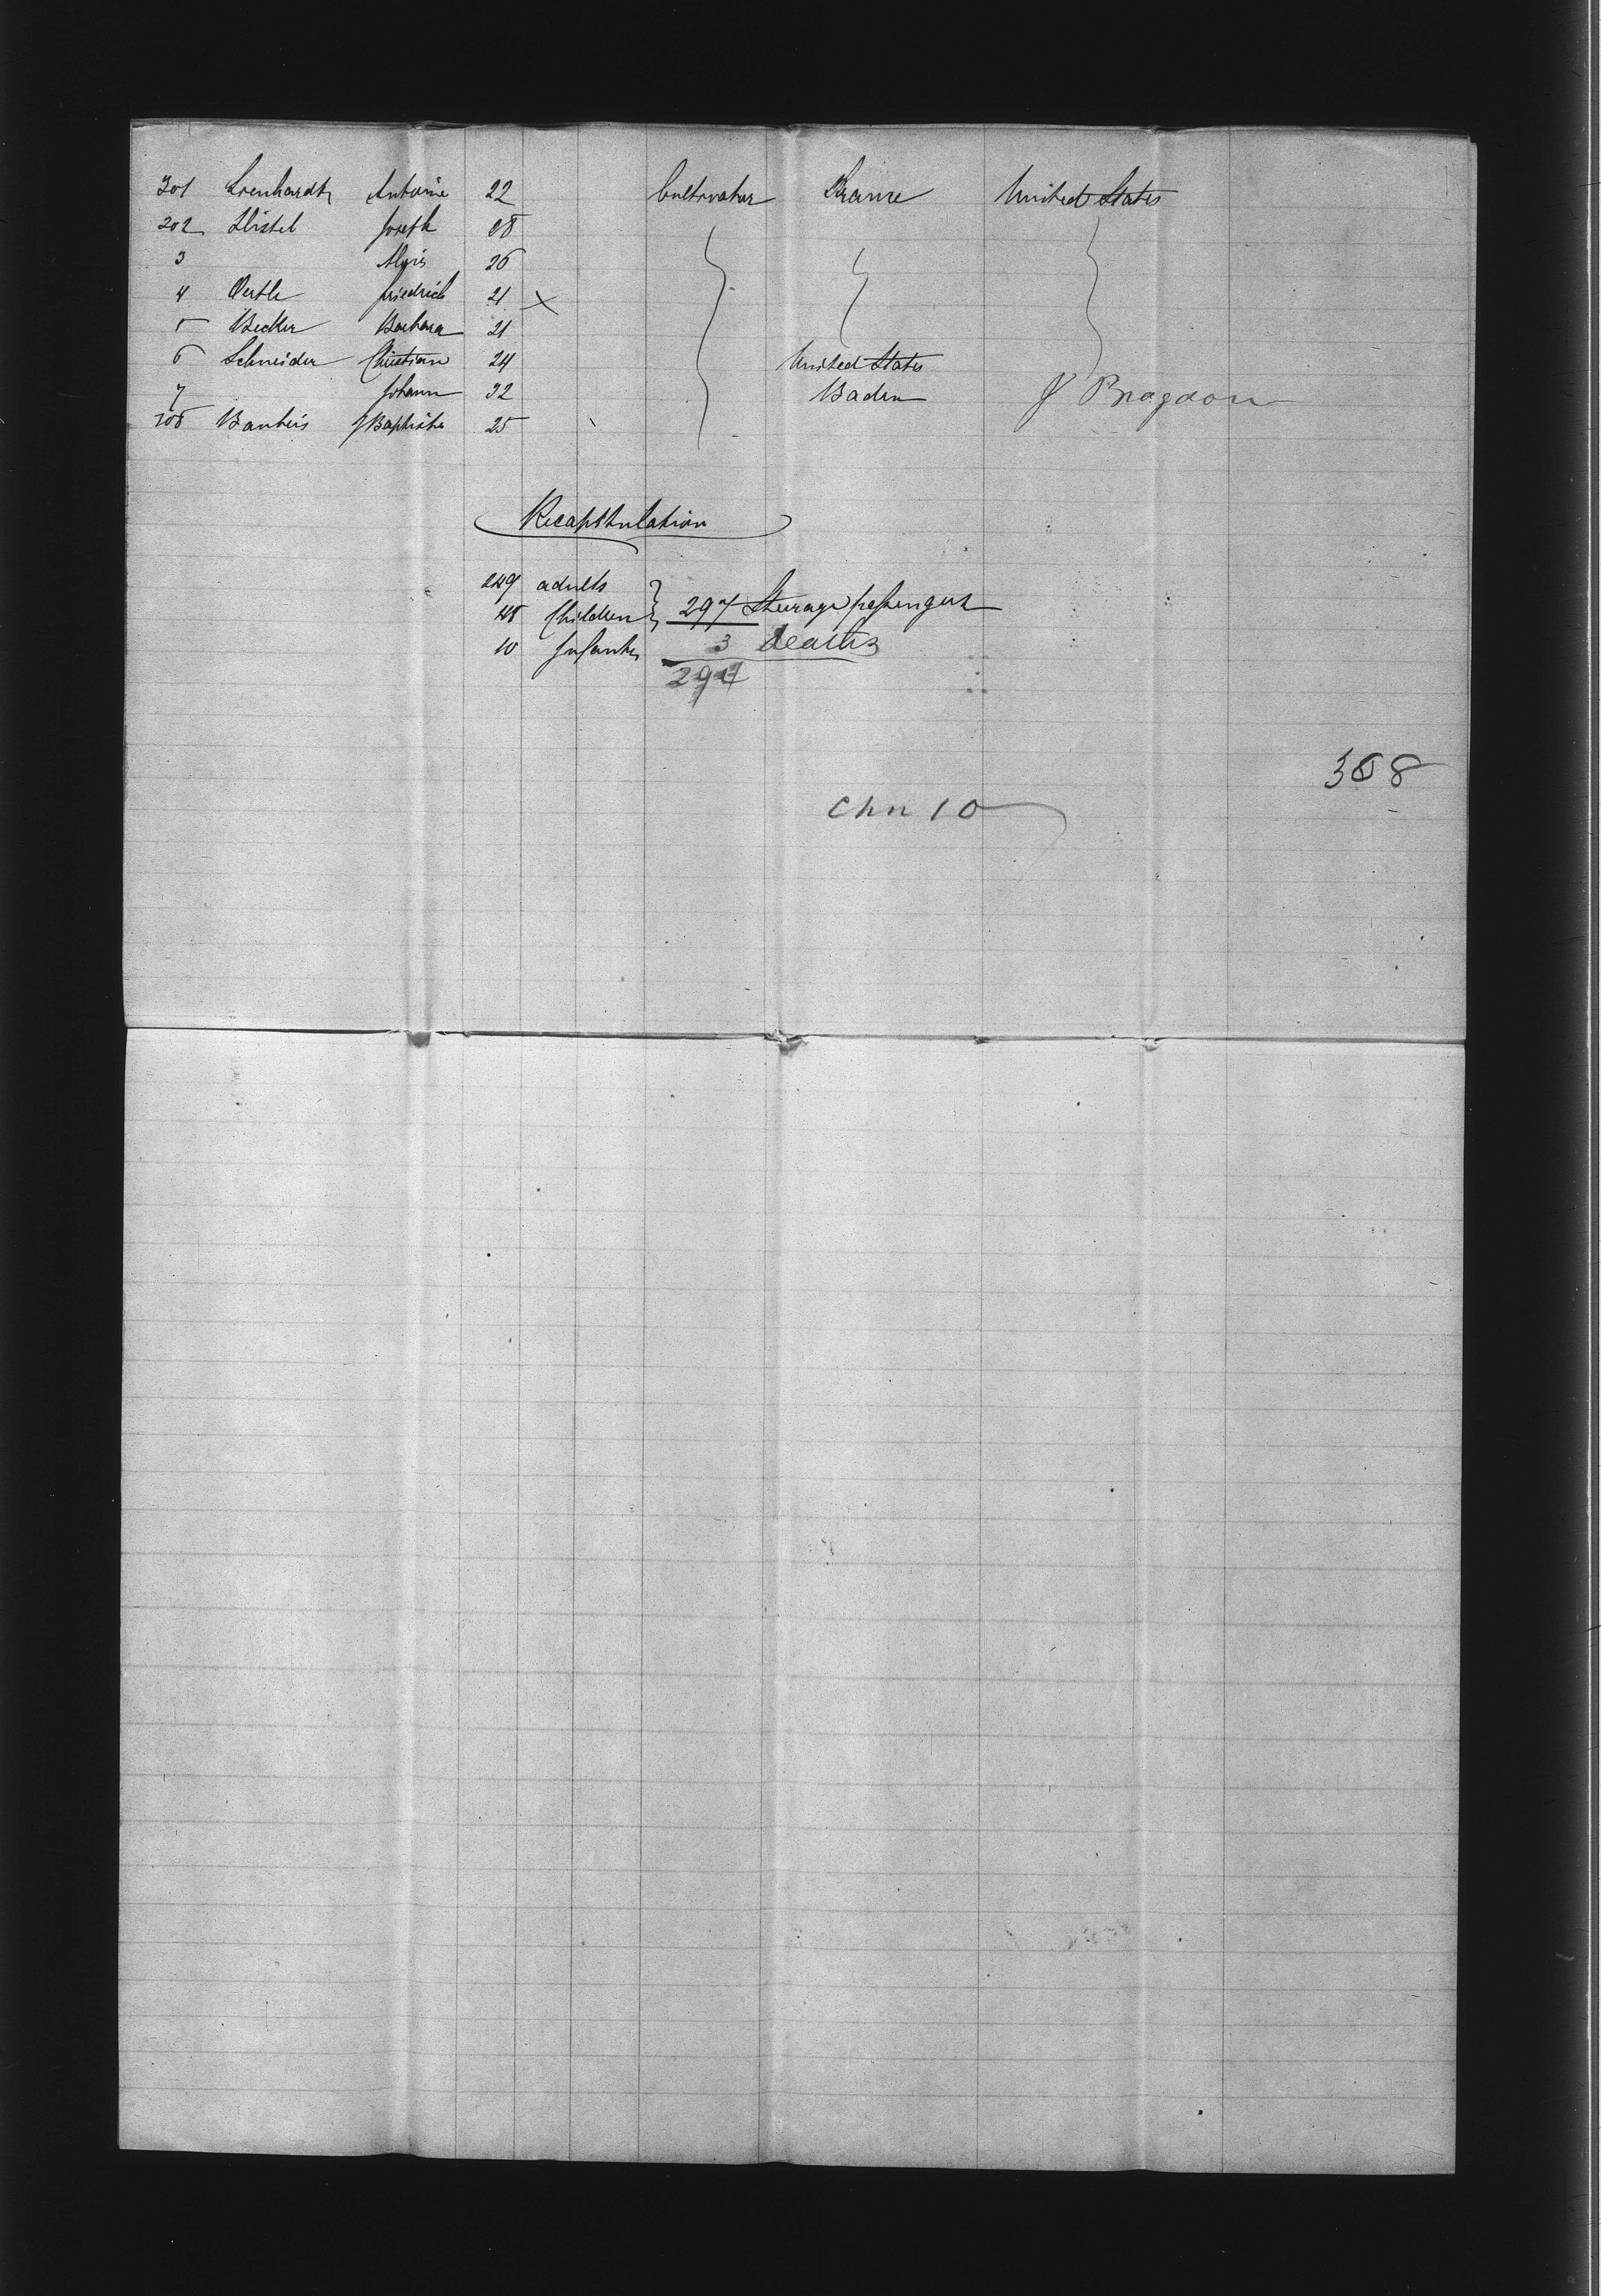 301 Lienhardt Antoine 22 Cultivator France United States
302 Distel Joseph 28
3 Aloys 26
4 Oertle Friedrich 21 X
5 Becker Barbara 21
6 Schneider Christian 24 United States
7 Johann 32 Baden J Bragdon
308 J Baptiste 25
Recapitulation
249 adults
48 Children 297 Steerage passengers
10 Infants 3 deaths
294
368
Chn 10